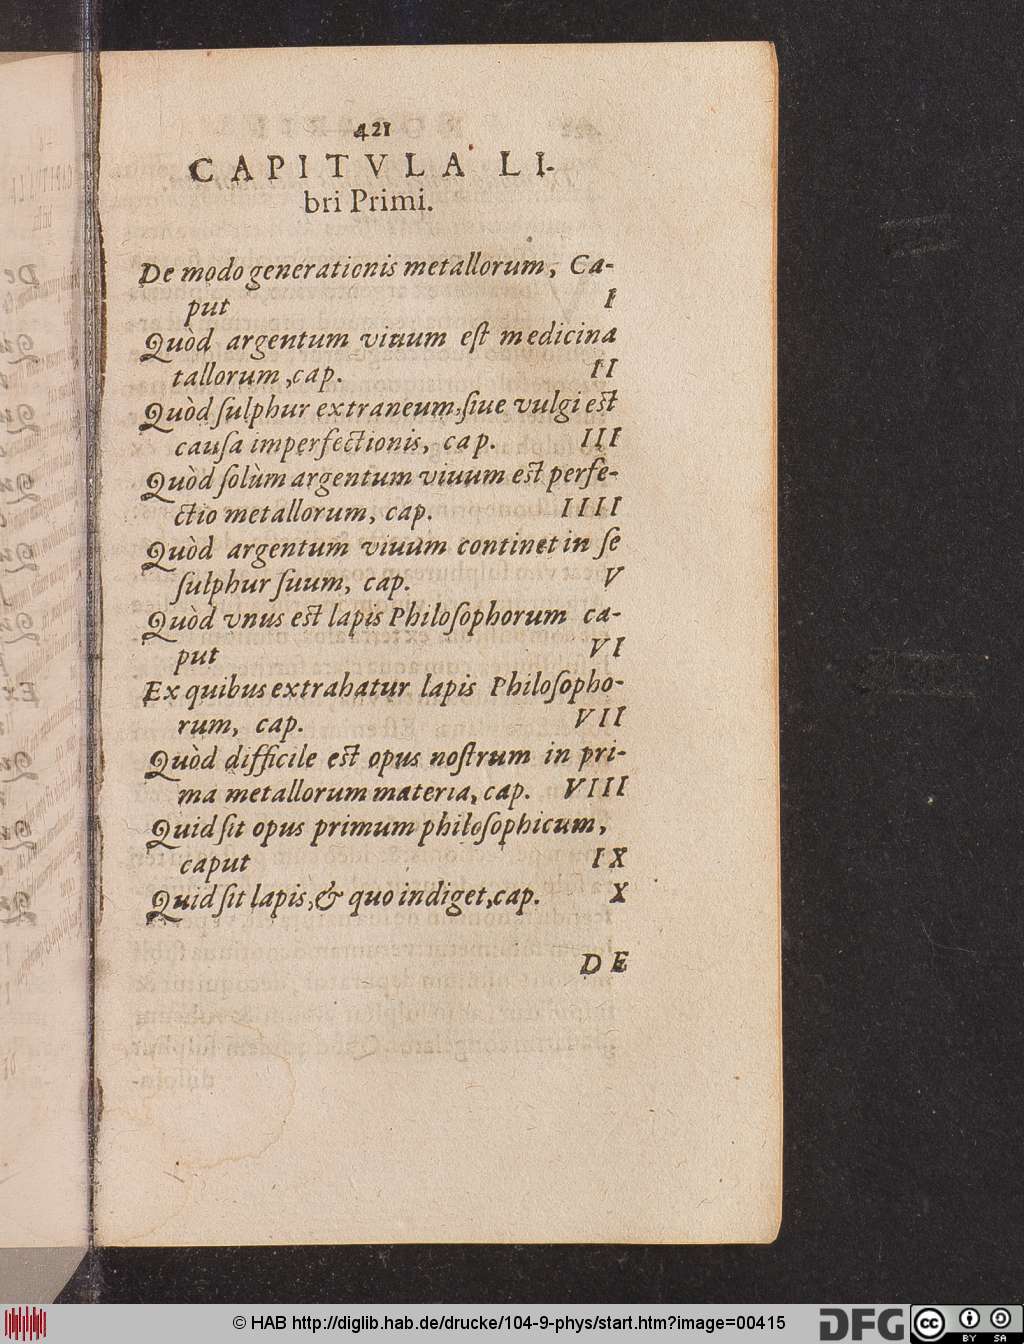 421
CAPITVLA LI-
bri Primi.
De modo generationis metallorum, Ca-
put I
Quòd argentum viuum eſt medicina
tallorum, cap. II
Quòd ſulphur extraneum, ſiue vulgi eſt
cauſa imperfectionis, cap. III
Quòd ſolùm argentum viuum eſt perfe-
ctio metallorum, cap. IIII
Quòd argentum viuum continet in ſe
ſulphur ſuum, cap. V
Quòd vnus eſt lapis Philoſophorum ca-
put VI
Ex quibus extrahatur lapis Philoſopho-
rum, cap. VII
Quòd difficile eſt opus noſtrum in pri-
ma metallorum materia, cap. VIII
Quid ſit opus primum philoſophicum,
caput IX
Quid ſit lapis, & quo indiget, cap. X
DE
© HAB http://diglib.hab.de/drucke/104-9-phys/start.htm?image=00415
DFG
cc
BY SA